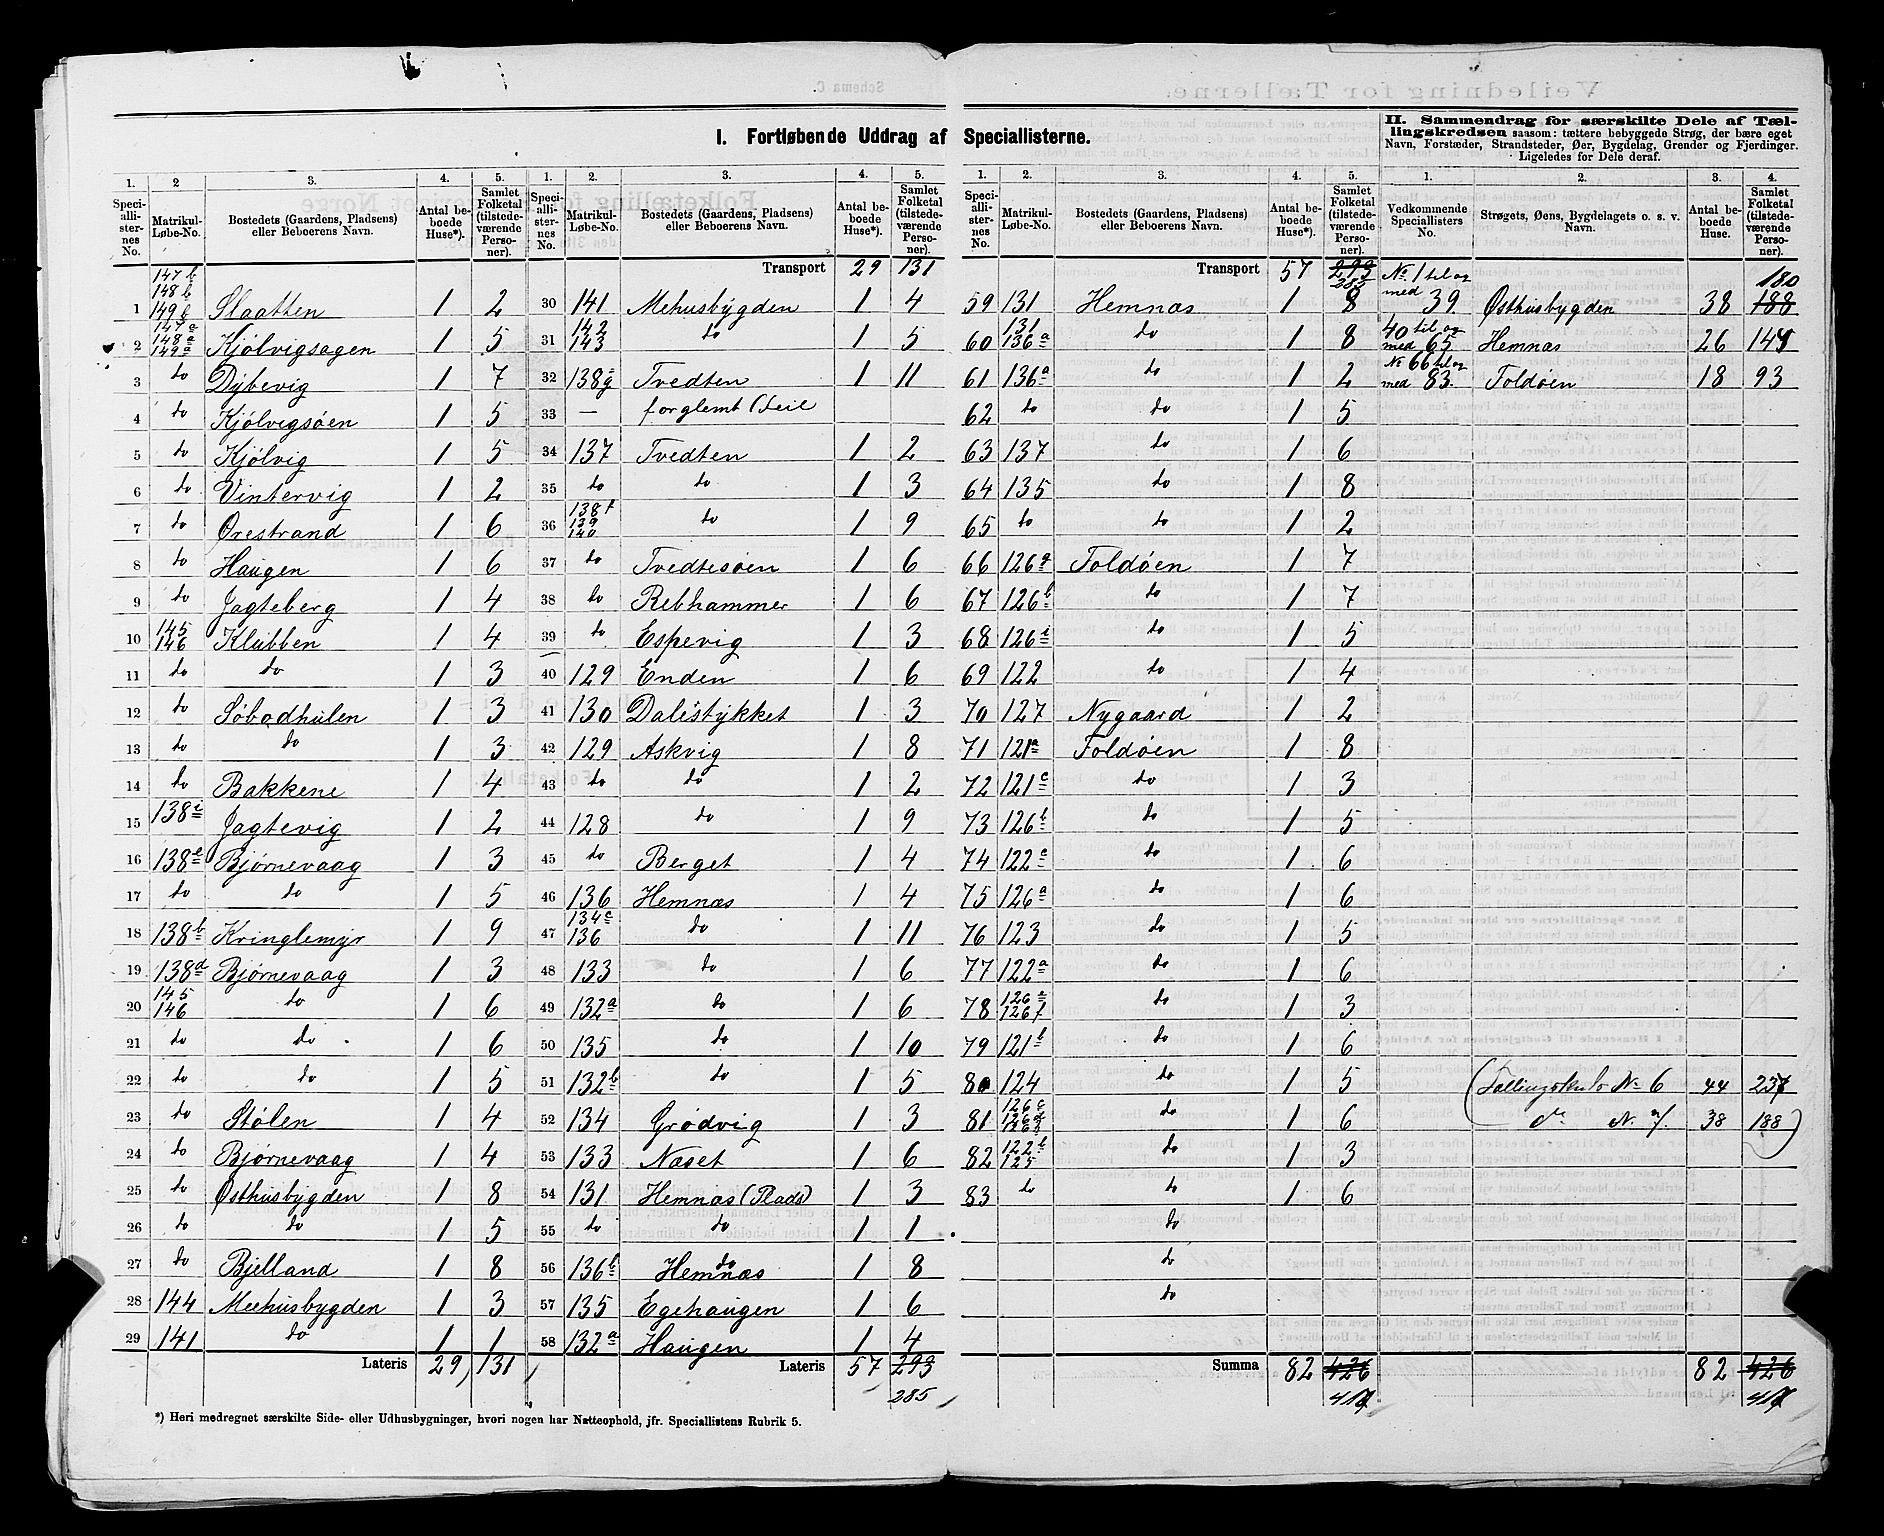 I. Fortløbende Uddrag af Speciallisterne.
II. Sammendrag for særskilte Dele af Tællingskredsen saasom: tættere bebyggede Strøg, der bære eget Navn, Forstæder, Strandsteder, Øer, Bygdelag, Grender og Fjerdinger. Ligeledes for Dele deraf.
1. 2 3. 4. 5.
Speciallisternes No. Matrikul-Løbe-No. Bostedets (Gaardens, Pladsens) eller Beboerens Navn. Antal beboede Huse*). Samlet Folketal (tilstedeværende Personer).
1 147b 148b 149b Slaatten 1 2
2 147a 148a 149a Kjølvigsagen 1 5
3 do Dybevig 1 7
4 do Kjølvigsøen 1 5
5 do Kjølvig 1 5
6 do Vintervig 1 2
7 do Ørestrand 1 6
8 do Haugen 1 6
9 do Jagteberg 1 4
10 145 146 Klubben 1 4
11 do do 1 3
12 do Søbodhulen 1 3
13 do do 1 3
14 do Bakkene 1 4
15 138i Jagtevig 1 2
16 138e Bjørnevaag 1 3
17 do do 1 5
18 138b Kringlemyr 1 9
19 138d Bjørnevaag 1 3
20 145 146 do 1 6
21 do do 1 6
22 do do 1 5
23 do Stølen 1 4
24 do Bjørnevaag 1 4
25 do Østhusbygden 1 8
26 do do 1 5
27 do Bjelland 1 8
28 144 Meehusbygden 1 3
29 141 do 1 1
Lateris 29 131
1. 2. 3. 4. 5.
Speciallisternes No. Matrikul-Løbe-No. Bostedets (Gaardens, Pladsens) eller Beboerens Navn. Antal beboede Huse*). Samlet Folketal (tilstedeværende Personer).
Transport 29 131
30 141 Mehusbygden 1 4
31 142 143 do 1 5
32 138g Tvedten 1 11
33 — forglemt (feil
34 137 Tvedten 1 2
35 do do 1 3
36 138f 139 140 do 1 9
37 do Tvedtesøen 1 6
38 do Rebhammer 1 6
39 do Espevig 1 3
40 129 Enden 1 6
41 130 Dalestykket 1 3
42 129 Askvig 1 8
43 do do 1 2
44 128 do 1 9
45 do Berget 1 4
46 136 Hemnæs 1 4
47 134c 136 do 1 11
48 133 do 1 6
49 132a do 1 6
50 135 do 1 10
51 132b do 1 5
52 134 Grødvig 1 3
53 133 Næset 1 6
54 131 Hemnæs (Plads) 1 3
55 do do 1 1
56 136b do Hemnæs 1 8
57 135 Egehaugen 1 6
58 132a Haugen 1 4
Lateris 57 293
285
*) Heri medregnet særskilte Side- eller Udhusbygninger, hvori nogen har Natteophold, jfr. Speciallistens Rubrik 5.
1. 2. 3. 4. 5.
Speciallisternes No. Matrikul-Løbe-No. Bostedets (Gaardens, Pladsens) eller Beboerens Navn. Antal beboede Huse*). Samlet Folketal (tilstedeværende Personer).
Transport 57 293
285
59 131 Hemnæs 1 8
60 131 136a do 1 8
61 136a do 1 2
62 do do 1 5
63 137 do 1 6
64 135 do 1 8
65 do do 1 2
66 126g Foldøen 1 7
67 126h do 1 7
68 126i do 1 5
69 122 do 1 4
70 127 Nygaard 1 2
71 121a Foldøen 1 8
72 121c do 1 3
73 126b do 1 5
74 122c do 1 6
75 126a do 1 6
76 123 do 1 5
77 122a do 1 6
78 126e 126f do 1 3
79 121b do 1 6
80 124 do 1 5
81 126c 126d do 1 6
82 122b 125 do 1 3
83 do do 1 6
do
do
do
Summa 82 426
1. 2. 3. 4.
Vedkommende Speciallisters No. Strøgets, Øens, Bygdelagets o. s. v. Navn. Antal beboede Huse. Samlet Folketal (tilstedeværende Personer).
180
No 1 til og med 39. Østhusbygden 38 188
40 til og med 65 Hemnæs 26 144
No 66 til og med 83. Foldøen 18 93
No 6 44 237
do No 7. 38 188)
82 426